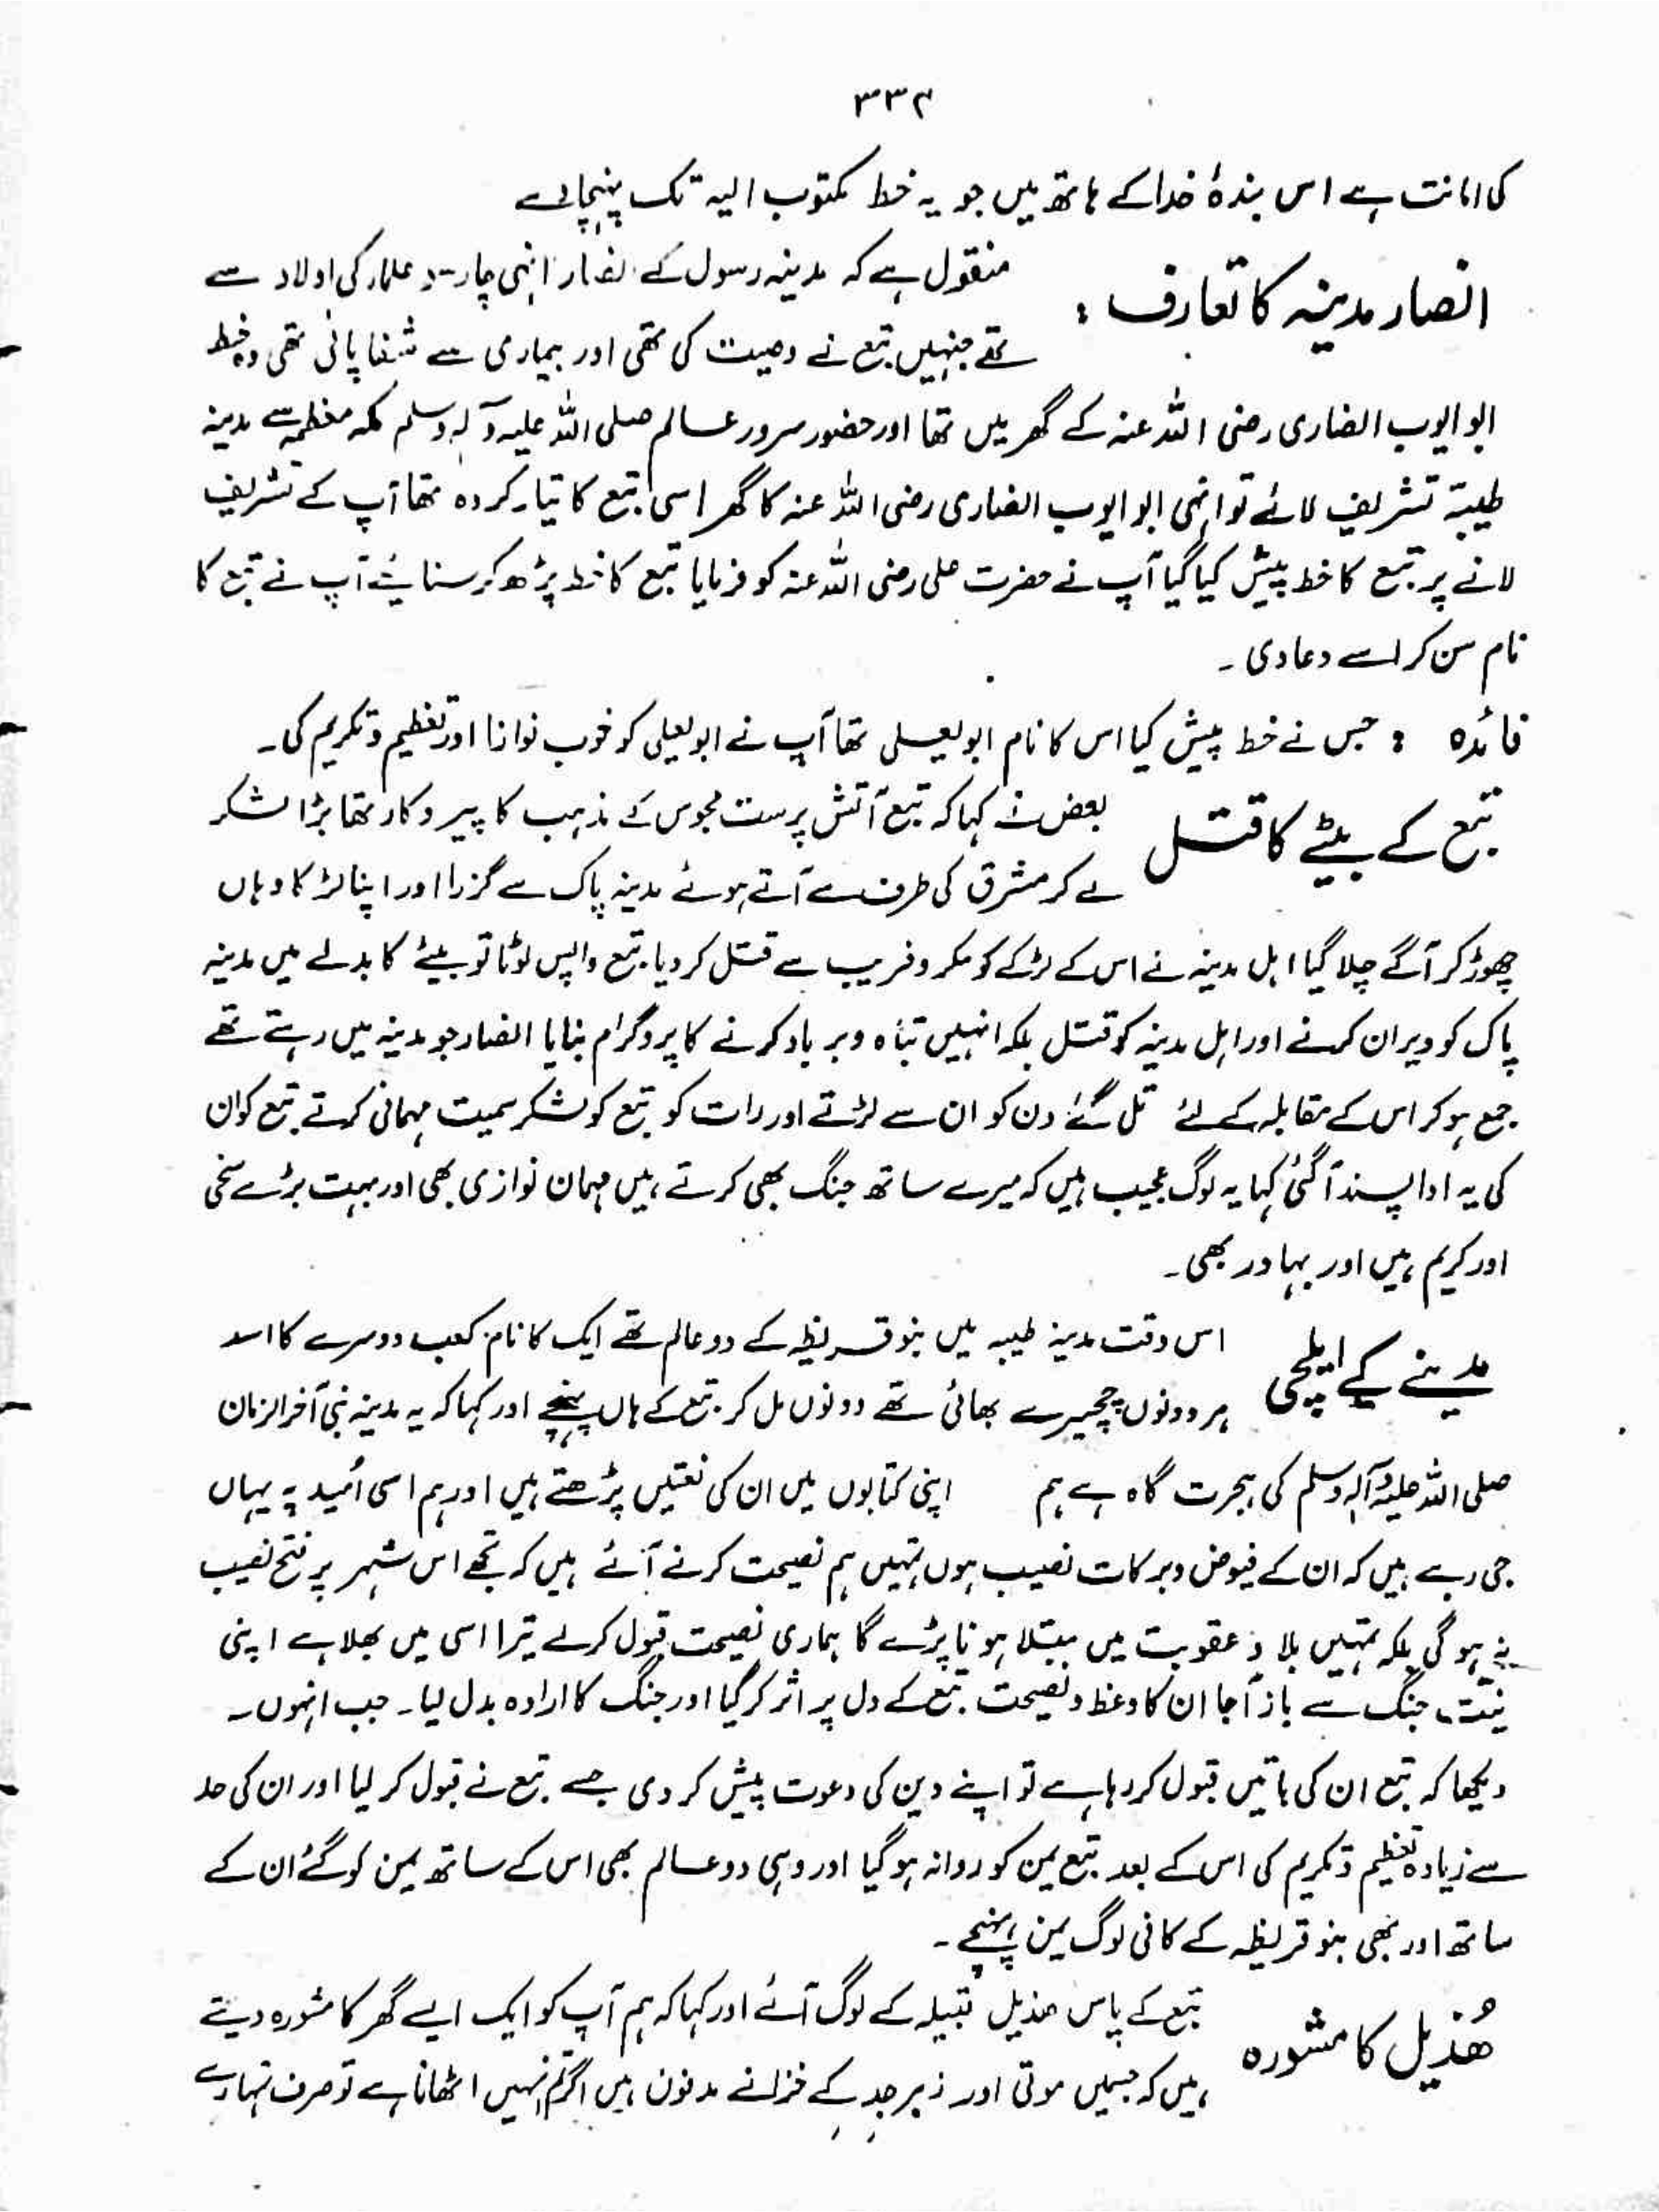 ۳۳۴
کی امانت ہے اس بندۂ خدا کے ہاتھ میں جو یہ خط مکتوب الیہ تک پہنچائے
انصار مدینہ کا تعارف :
منقول ہے کہ مدینہ رسول کے انصار انہی چار سو علماء کی اولاد سے
تھے جنہیں تبع نے وصیت کی تھی اور بیماری سے شفا پائی تھی وہ خط
ابو ایوب انصاری رضی اللہ عنہ کے گھر میں تھا اور حضور سرور عالم صلی اللہ علیہ وآلہ وسلم مکہ معظمہ سے مدینہ
طیبۃ تشریف لائے تو انہی ابو ایوب انصاری رضی اللہ عنہ کا گھر اسی تبع کا تیار کردہ تھا آپ کے تشریف
لانے پر تبع کا خط پیش کیا گیا آپ نے حضرت علی رضی اللہ عنہ کو فرمایا تبع کا خط پڑھ کر سنائیے آپ نے تبع کا
نام سن کر اسے دعا دی ۔
فائدہ : جس نے خط پیش کیا اس کا نام ابو یعلی تھا آپ نے ابو یعلی کو خوب نوازا اور تعظیم و تکریم کی۔
تبع کے بیٹے کا قتل
بعض نے کہا کہ تبع آتش پرست مجوس کے مذہب کا پیروکار تھا بڑا لشکر
لے کر مشرق کی طرف سے آتے ہوئے مدینہ پاک سے گزرا اور اپنا لڑکا وہاں
چھوڑ کر آگے چلا گیا اہل مدینہ نے اس کے لڑکے کو مکر و فریب سے قتل کر دیا۔ تبع واپس لوٹا تو بیٹے کا بدلے میں مدینہ
پاک کو ویران کرنے اور اہل مدینہ کو قتل بلکہ انہیں تباہ و برباد کرنے کا پروگرام بنایا انصار جو مدینہ میں رہتے تھے
جمع ہو کر اس کے مقابلہ کے لئے تل گئے دن کو ان سے لڑتے اور رات کو تبع کو لشکر سمیت مہمانی کرتے تبع کو ان
کی یہ ادا پسند آگئی کہا یہ لوگ عجیب ہیں کہ میرے ساتھ جنگ بھی کرتے ہیں مہمان نوازی بھی اور بہت بڑے سخی
اور کریم ہیں اور بہادر بھی۔
مدینے کے ایلچی
اس وقت مدینہ طیبہ میں بنو قریظہ کے دو عالم تھے ایک کا نام کعب دوسرے کا اسد
ہر دونوں چچیرے بھائی تھے دونوں مل کر تبع کے ہاں پہنچے اور کہا کہ یہ مدینہ نبی آخر الزمان
صلی اللہ علیہ وآلہ وسلم کی ہجرت گاہ ہے ہم اپنی کتابوں میں ان کی نعتیں پڑھتے ہیں اور ہم اسی اُمید پہ یہاں
جی رہے ہیں کہ ان کے فیوض و برکات نصیب ہوں تمہیں ہم نصیحت کرنے آئے ہیں کہ تجھے اس شہر پر فتح نصیب
نہ ہو گی بلکہ تمہیں بلا و عقوبت میں مبتلا ہونا پڑے گا ہماری نصیحت قبول کرلے تیرا اسی میں بھلا ہے اپنی
نیت جنگ سے باز آجا ان کا وعظ و نصیحت تبع کے دل پر اثر کر گیا اور جنگ کا ارادہ بدل لیا۔ جب انہوں
دیکھا کہ تبع ان کی باتیں قبول کر رہا ہے تو اپنے دین کی دعوت پیش کر دی جسے تبع نے قبول کر لیا اور ان کی حد
سے زیادہ تعظیم و تکریم کی اس کے بعد تبع یمن کو روانہ ہو گیا اور وہی دو عالم بھی اس کے ساتھ یمن کو گئے ان کے
ساتھ اور بھی بنو قریظہ کے کافی لوگ یمن پہنچے ۔
ھُذیل کا مشورہ
تبع کے پاس ھذیل قبیلہ کے لوگ آئے اور کہا کہ ہم آپ کو ایک ایسے گھر کا مشورہ دیتے
ہیں کہ جسمیں موتی اور زبرجد کے خزانے مدفون ہیں اگر تم انہیں اٹھانا ہے تو صرف تمہارے